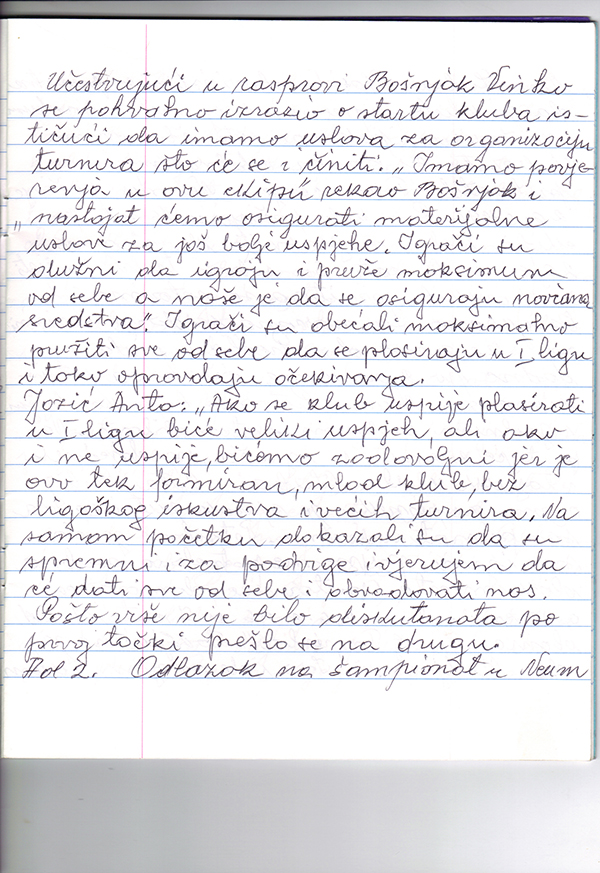 Učestvujući u raspravi Bošnjak Vinko
se pohvalno izrazio o startu kluba is-
tičući da imamo uslova za organizaciju
turnira sto će se i činiti. „Imamo povje-
renja u ovu ekipu rekao Bošnjak i
„nastojat ćemo osigurati materijalne
uslove za još bolje uspjehe. Igrači su
dužni da igraju i pruže maksimum
od sebe a naše je da se osiguraju novčana
sredstva". Igrači su obećali maksimalno
pružiti sve od sebe da se plasiraju u I ligu
i tako opravdaju očekivanja.
Jozić Anto: „Ako se klub uspije plasirati
u I ligu biće veliki uspjeh, ali ako
i ne uspije, bićemo zadovoljni jer je
ovo tek formiran, mlad klub, bez
ligaškog iskustva i većih turnira. Na
samom početku dokazali su da su
spremni i za podvige i vjerujem da
će dati sve od sebe i obradovati nas.
Pošto više nije bilo diskutanata po
prvoj točki prešlo se na drugu.
Ad 2. Odlazak na šampionat u Neum